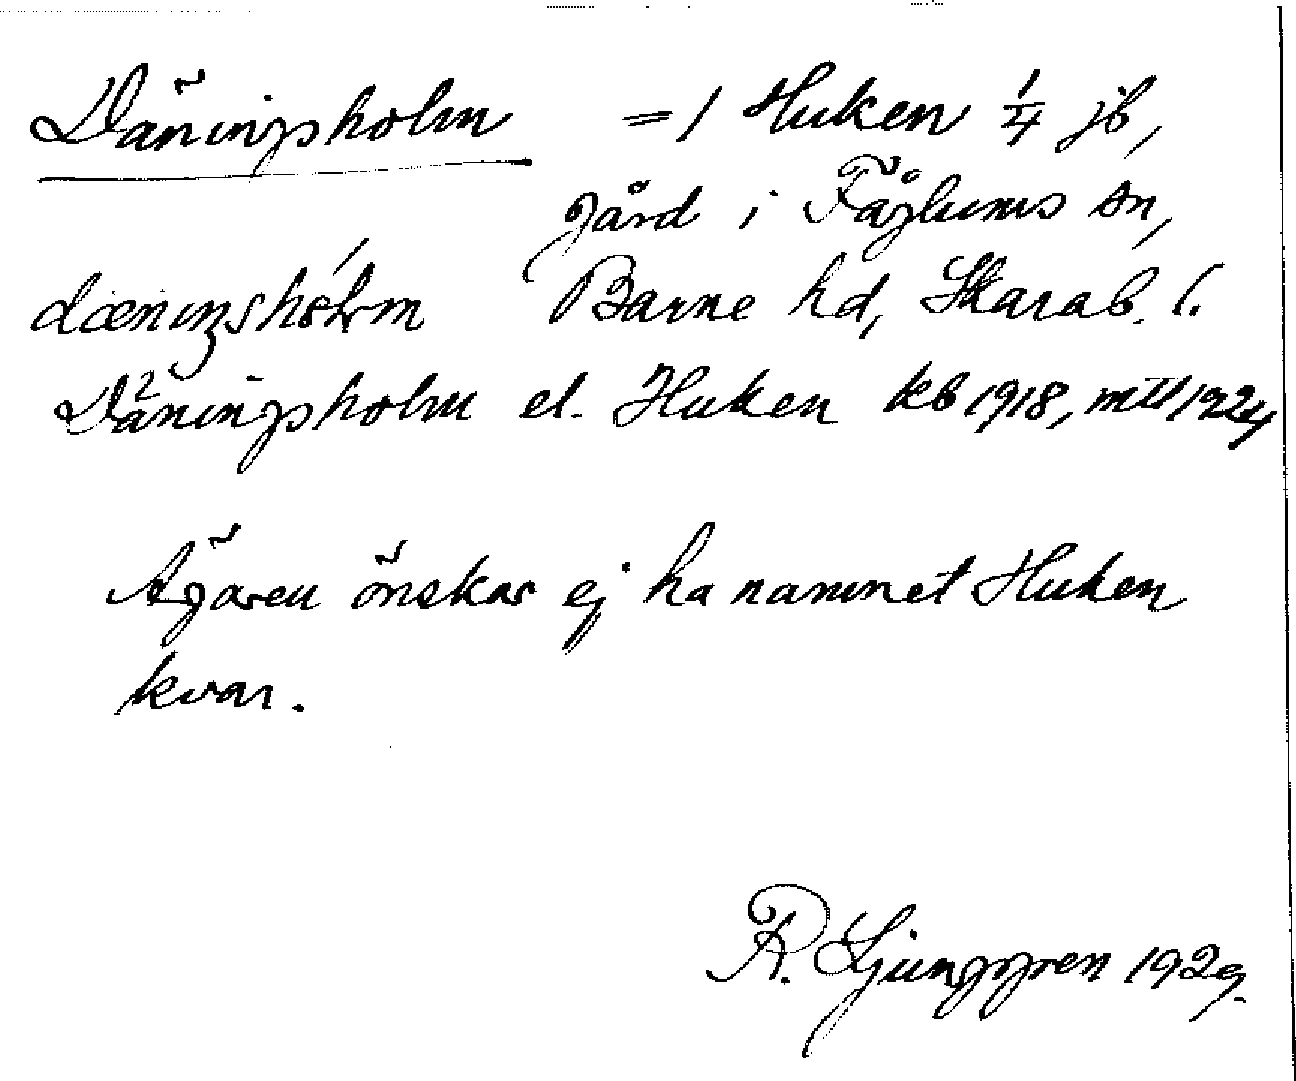 Däningsholm = / Huken 1/4 jb,
gård i Fåglums sn,
dæniŋshòlm Barne hd, Skarab. l.
Däningsholm el. Huken kb 1918, mtl 1924
Ägaren önskar ej ha namnet Huken
kvar.
R. Ljunggren 1929.